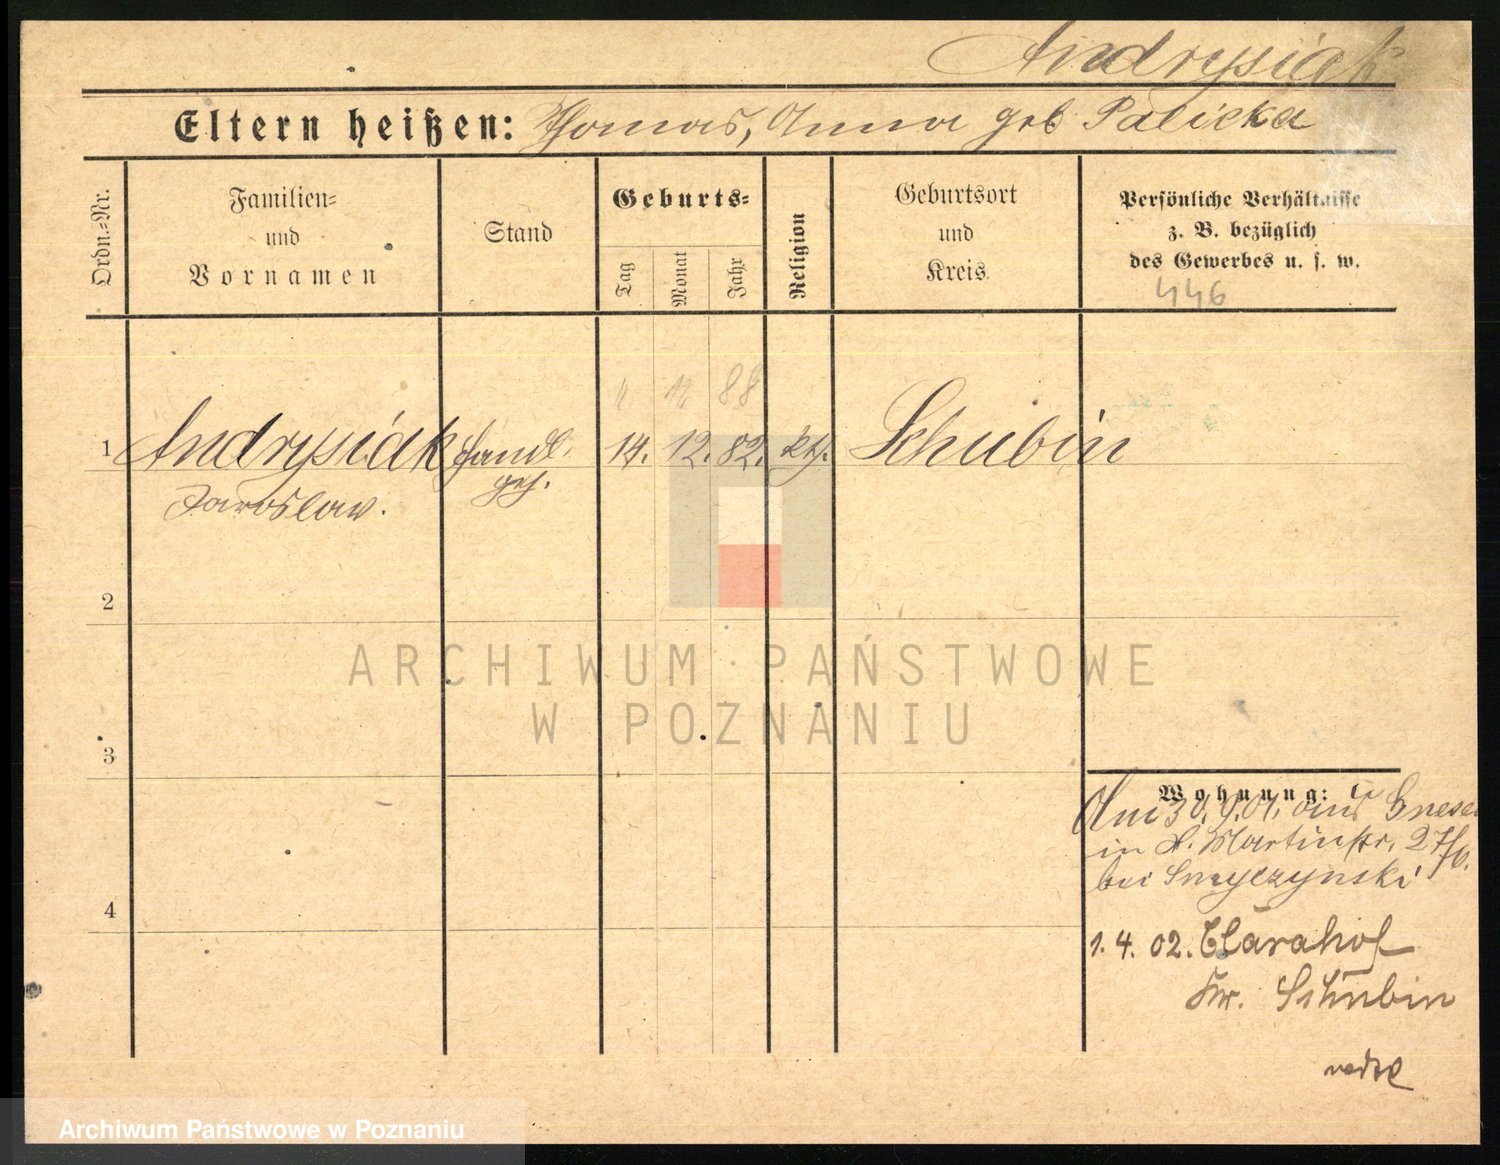 Andrysiak
Eltern heißen: Thomas, Anna geb Palicka
Ordn.-Nr.
Familien-
und
Vornamen
Stand
Geburts-
Tag
Monat
Jahr
Religion
Geburtsort
und
Kreis
Persönliche Verhältnisse
z. B. bezüglich
des Gewerbes u. s. w.
446
12 88
1 Andrysiak Handl. 14. 12. 82. kth. Schubin
Jaroslaw. geh.
2
3
4
ARCHIWUM PAŃSTWOWE
W POZNANIU
Wohnung:
Am 30.9.01. aus Gnesen
in St. Martinstr. 27
bei Smyczynski
1. 4. 02. Clarahof
Kr. Schubin
Archiwum Państwowe w Poznaniu